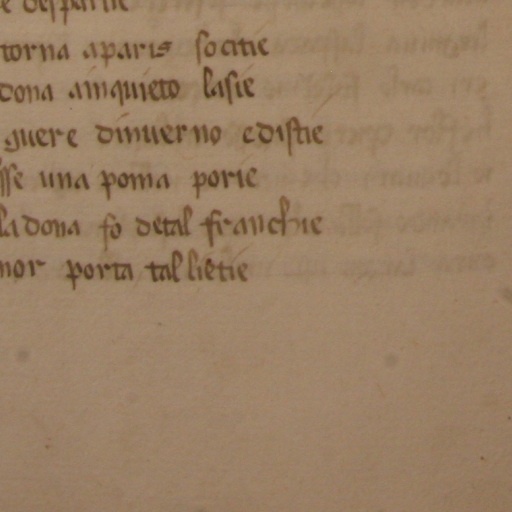 e despartie
torna aparis socitie
dona ainquieto lasie
guere dinuerno edistie
sse una poma porie
la dona fo detal franchie
mor porta tal lietie